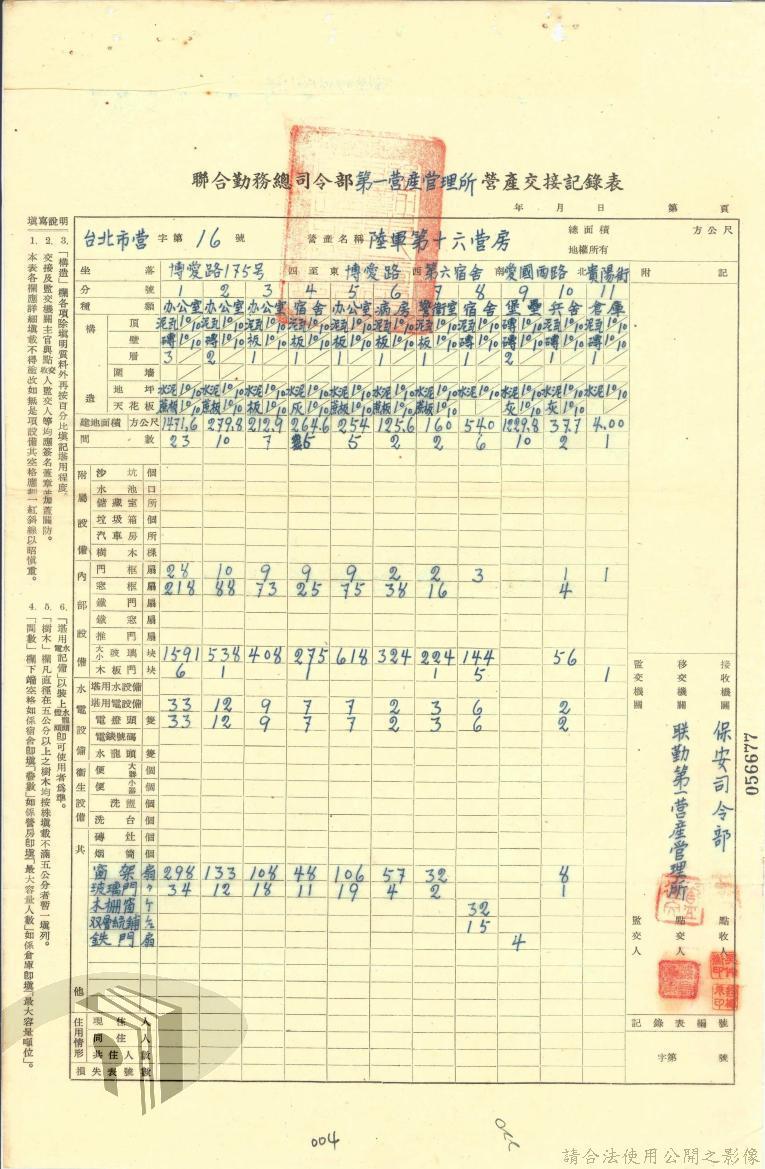 聯合勤務總司令部第一营産管理所營產交接記錄表
年 月 日 第 頁
台北市营 字第 16 號 營產名稱 陸軍第十六营房 總面積 方公尺
地權所有
坐落 博愛路175号 四至 東 博愛路 西 第六宿舍 南 愛國西路 北 貴陽街 附記
分號 1 2 3 4 5 6 7 8 9 10 11
種類 办公室 办公室 办公室 宿舍 办公室 病房 警衛室 宿舍 堡壘 兵舍 倉庫
構造
頂
壁 磚 磚 板 板 板 板 板 板 磚 磚 磚
層 3 2 1 1 1 1 1 1 2 1 1
圍墻
地坪 水泥 水泥 水泥 水泥 水泥 水泥 水泥 水泥 水泥 水泥
天花板
建地面積 方公尺 1471.6 279.8 212.9 264.6 254 125.6 160 540 1229.8 37.7 4.00
間數 23 10 7 25 5 2 2 6 10 2 1
附屬設備
沙坑 個
水池 口
儲藏室 所
垃圾箱 個
汽車房 所
樹木 棵
內部設備
門框 扇 28 10 9 9 9 2 2 3 1 1
窓框 扇 218 88 73 25 75 38 16 4
鐵門 扇
鐵窓 扇
推門 扇
大小玻璃 块 1591 538 408 275 618 324 224 144 56
木板門 块 6 1 1 1 5 1
水電設備
堪用水設備
堪用電設備 33 12 9 7 7 2 3 6 2
電燈頭 隻 33 12 9 7 7 2 3 6 2
電錶號碼
水龍頭 隻
衛生設備
便 大 個
便 小 個
洗 個
洗台 個
磚灶 個
烟筒 個
其他
窗架 扇 298 133 108 48 106 57 32 8
玻璃門 〃 34 12 18 11 19 4 2 1
木栅窗 32
双層統鋪 15
鉄門 扇 4
住用情形
現住人
同住人
共住人數
損失表號數
接收機關 保安司令部 點收人
移交機關 联勤第一营產管理所 點交人
監交機關 監交人
記錄表編號
字第 號
填寫說明
1. 本表各欄應詳細填載不得塗改如無是項設備其空格應劃一紅斜線以昭慎重。
2. 交接及監交機關主官與點收交人監交人等均應簽名蓋章並加蓋關防。
3.「構造」欄各項除填明質料外再按百分比填記堪用程度。
4.「間數」欄下端空格如係宿舍卽填「疊數」如係營房卽填「最大容量人數」如係倉庫卽填「最大容量噸位」。
5.「樹木」欄凡直徑在五公分以上之樹木均按株填載不滿五公分者暫一填列。
6.「堪用水電設備」以裝上水龍頭燈頭卽可使用者為準。
056677
004
請合法使用公開之影像